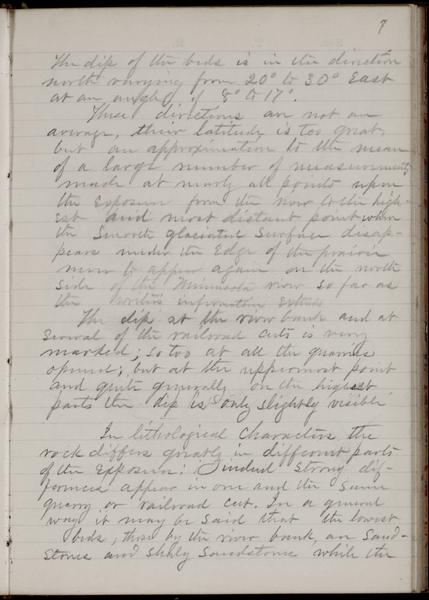 7
The dip of the beds is in the direction
north varying from 20° to 30° East
at an angle of 8° to 17°.
These directions are not an
average, their latitude is too great,
but an approximation to the mean
of a large number of measurements
made at nearly all points upon
the Exposure from the river to the high-
est and most distant point where
the smooth glaciated surface disap-
pears under the Edge of the prairie
never to appear again on the north
side of the Minnesota river so far as
the writers information extends
The dip at the river bank and at
several of the railroad cuts is very
marked; so too at all the quarries
opened; but at the uppermost point
and quite generally on the highest
parts the dip is only slightly visible
In lithological characters the
rock differs greatly in different parts
of the Exposure: Indeed strong dif-
ferences appear in one and the same
quarry or railroad cut. In a general
way it may be said that the lowest
beds, those by the river bank, are Sand-
stones and shaly Sandstones while the